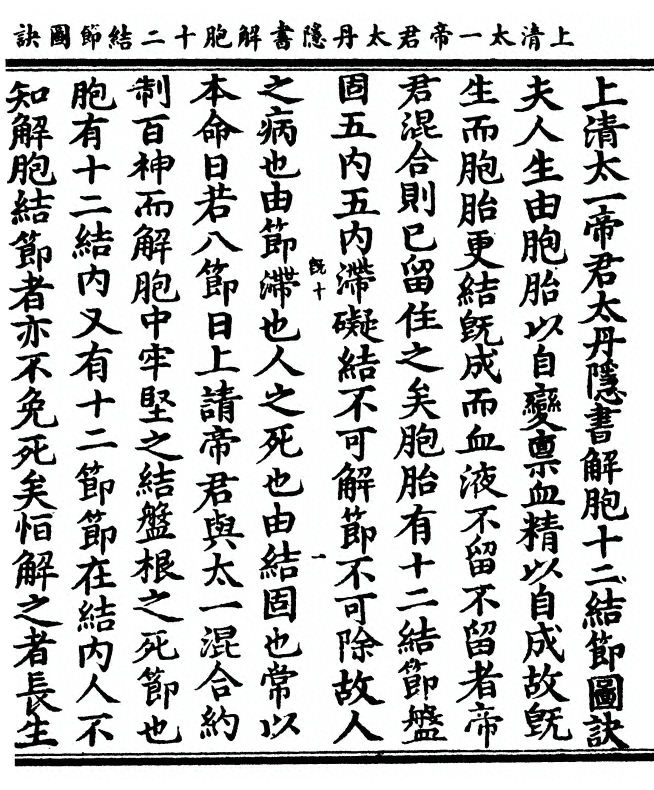 上清太一帝君太丹隱書解胞十二結節圖訣
上清太一帝君太丹隱書解胞十二結節圖訣
夫人生由胞胎以自變禀血精以自成故旣
生而胞胎更結旣成而血液不留不留者帝
君混合則已留住之矣胞胎有十二結節盤
固五内五内滯礙結不可解節不可除故人
旣十 一
之病也由節滯也人之死也由結固也常以
本命日若八節日上請帝君與太一混合約
制百神而解胞中牢堅之結盤根之死節也
胞有十二結内又有十二節節在結内人不
知解胞結節者亦不免死矣恒解之者長生